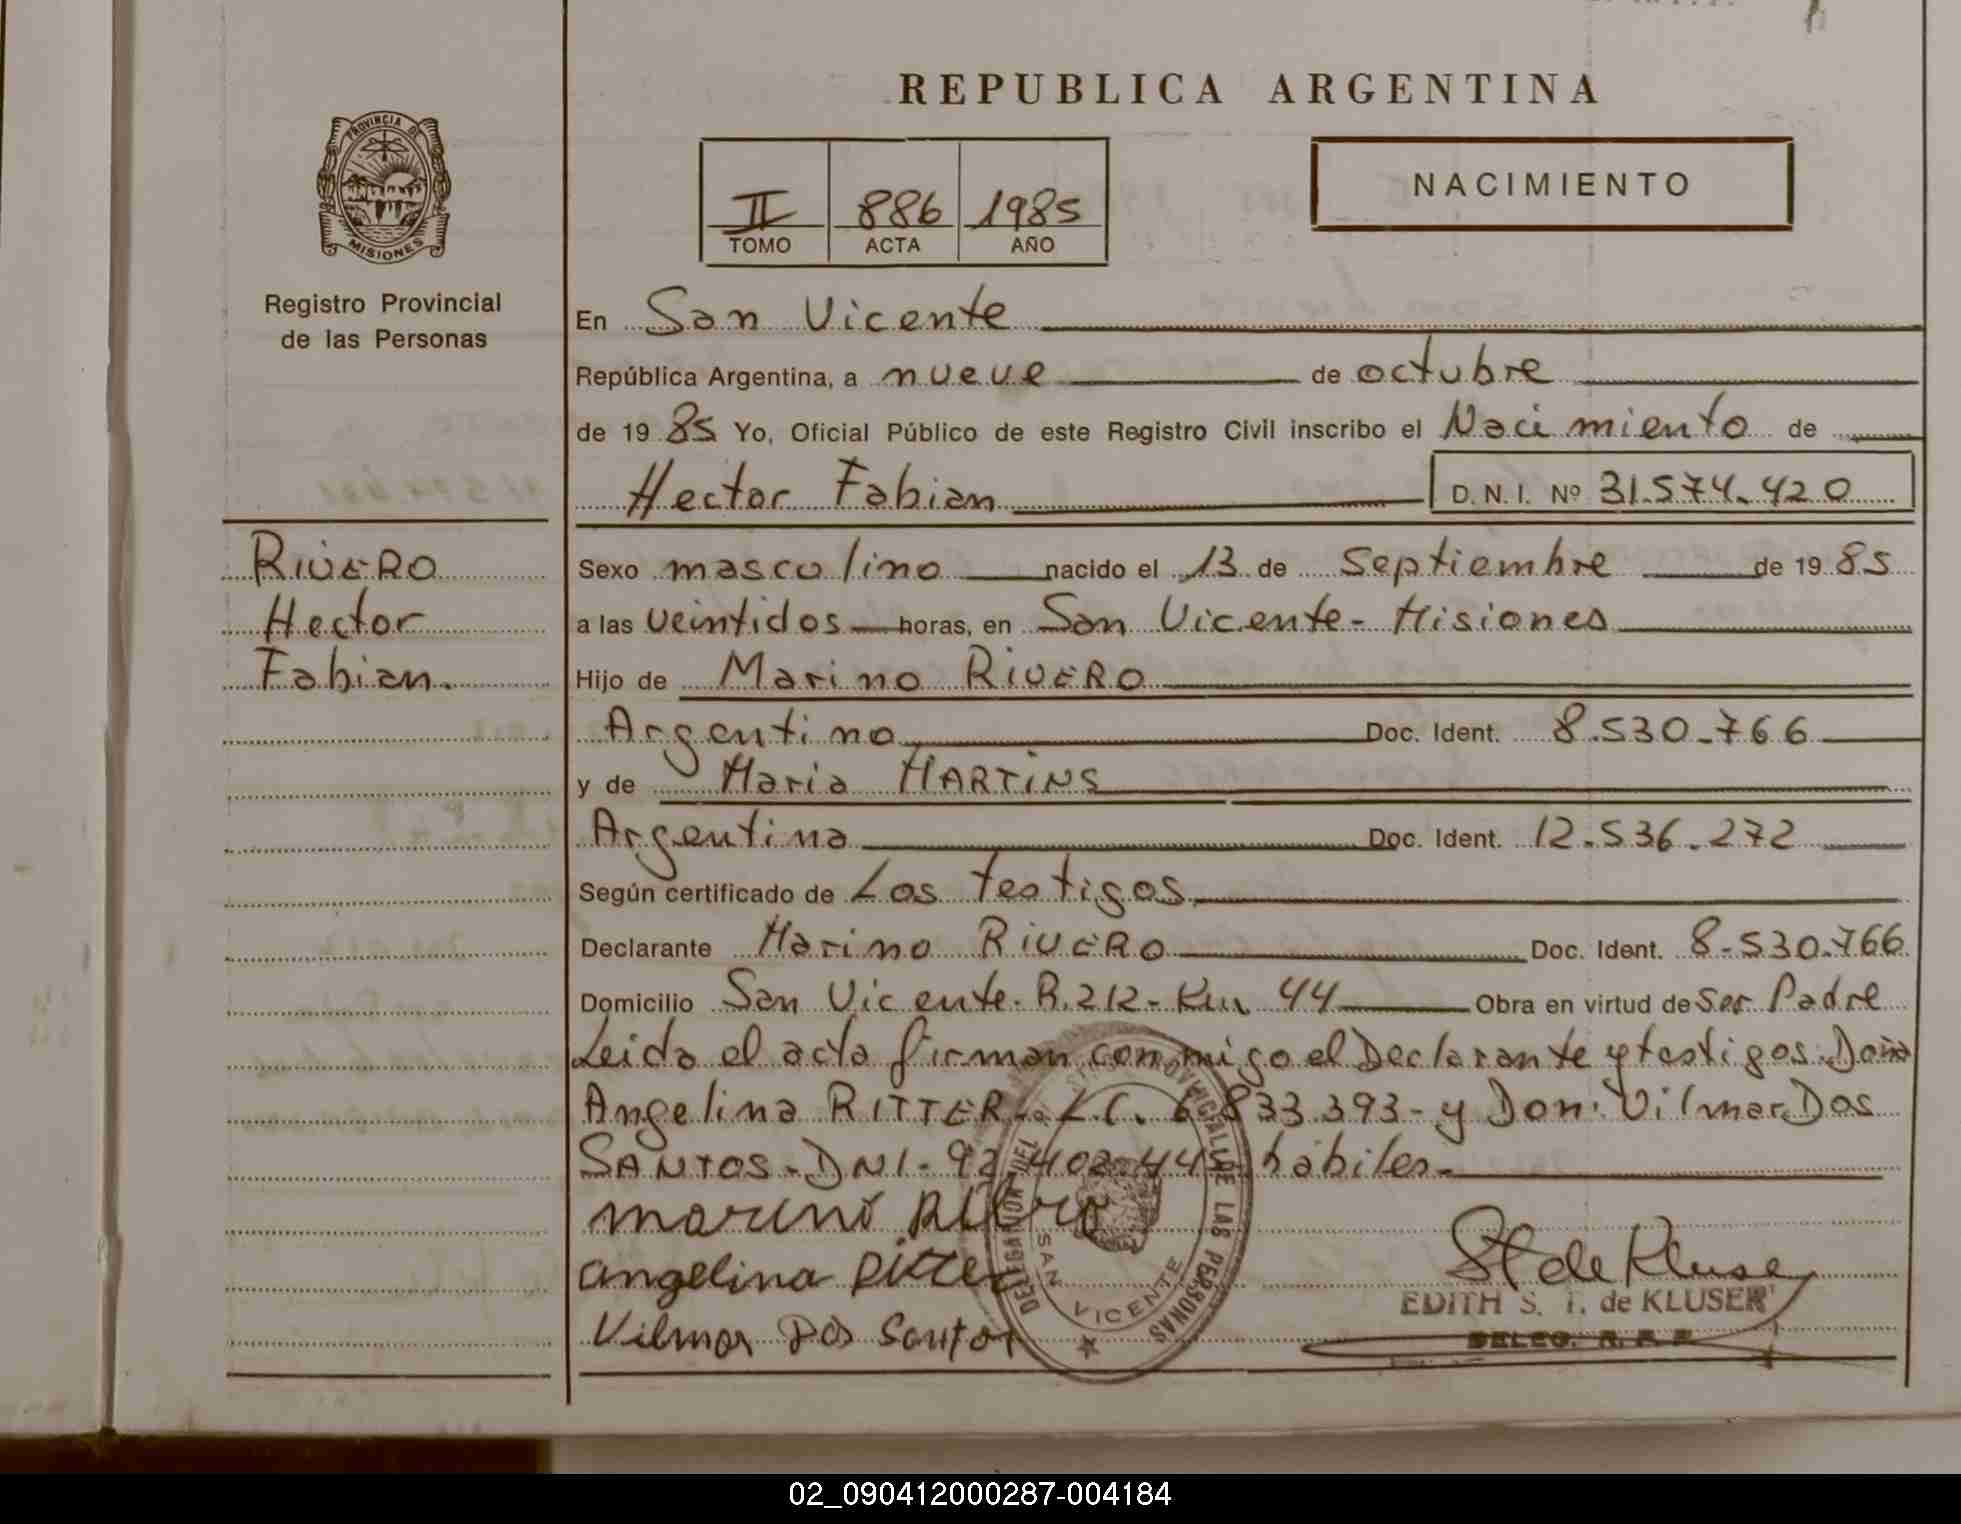 REPUBLICA ARGENTINA
PROVINCIA DE
MISIONES
Registro Provincial
de las Personas
II 886 1985
TOMO ACTA AÑO
NACIMIENTO
En San Vicente
República Argentina, a nueve de octubre
de 19 85 Yo, Oficial Público de este Registro Civil inscribo el Nacimiento de
Hector Fabian D. N. I. Nº 31.574.420
RIVERO
Hector
Fabian.
Sexo masculino nacido el 13 de Septiembre de 19 85
a las veintidos horas, en San Vicente - Misiones
Hijo de Marino RIVERO
Argentino Doc. Ident. 8.530.766
y de Maria MARTINS
Argentina Doc. Ident. 12.536.272
Según certificado de Los testigos
Declarante Marino RIVERO Doc. Ident. 8.530.766
Domicilio San Vicente. R.212 - Km 44 Obra en virtud de Ser Padre
Leida el acta firman conmigo el Declarante y testigos. Doña
Angelina RITTER - L.C. 6.833.393 - y Don: Vilmar Dos
SANTOS - DNI - 92.402.445 habiles.
marino Rivero
angelina Ritter
Vilmar Dos Santos
DELEGACION DEL REGISTRO PROVINCIAL DE LAS PERSONAS
SAN VICENTE
St de Kluser
EDITH S. T. de KLUSER
DELEG. R. P. P.
02_090412000287-004184